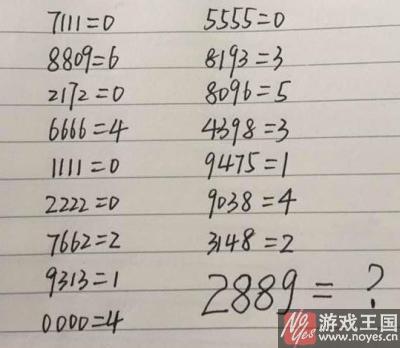 7111=0
8809=6
2172=0
6666=4
1111=0
2222=0
7662=2
9313=1
0000=4
5555=0
8193=3
8096=5
4398=3
9475=1
9038=4
3148=2
2889=?
NoYes 游戏王国
www.noyes.cn